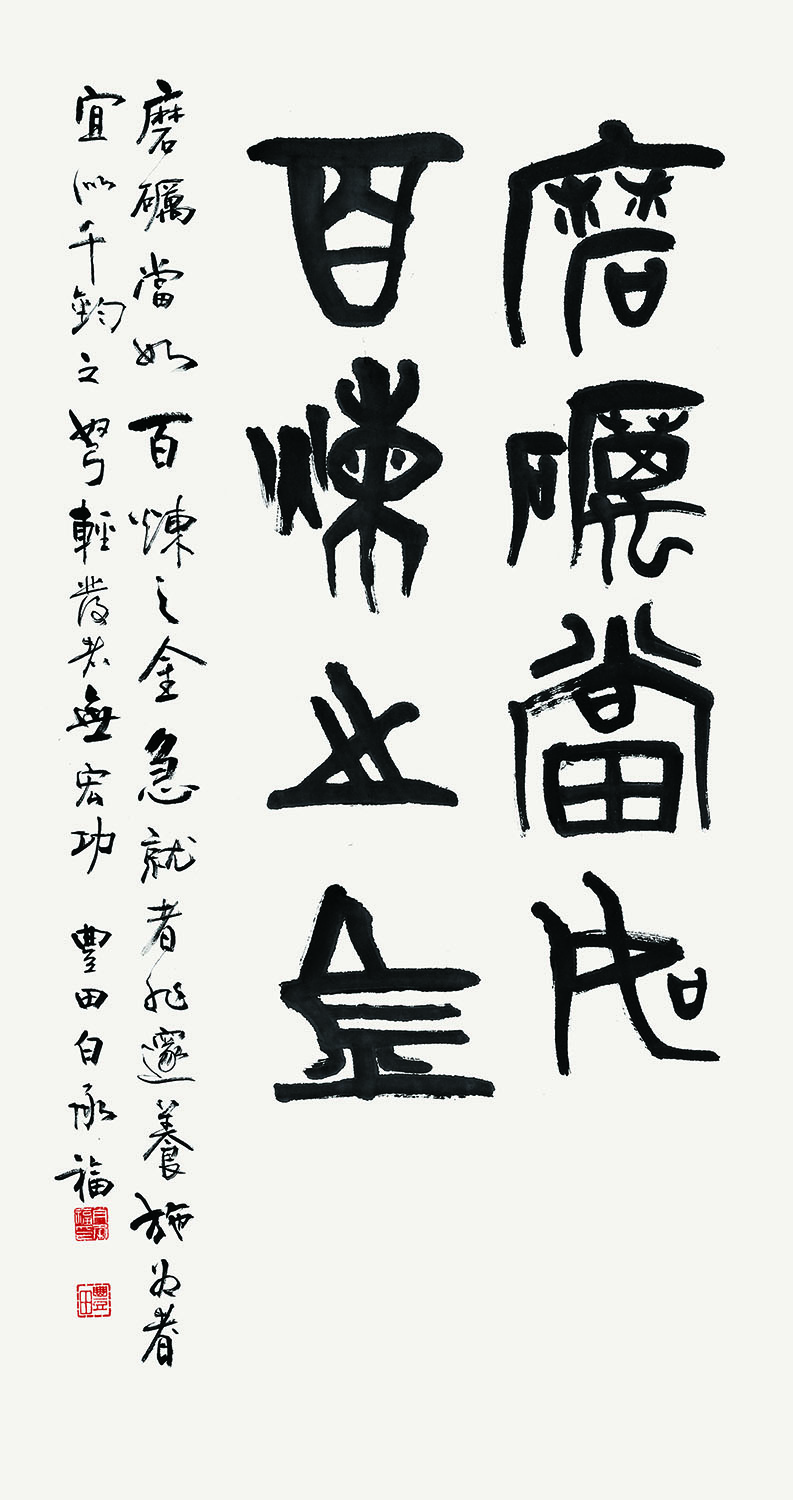 磨礪當如
百煉之金
磨礪當如百煉之金急就者非邃養施为者
宜似千鈞之弩輕發者無宏功 豐田白承福
白承福印
豐田